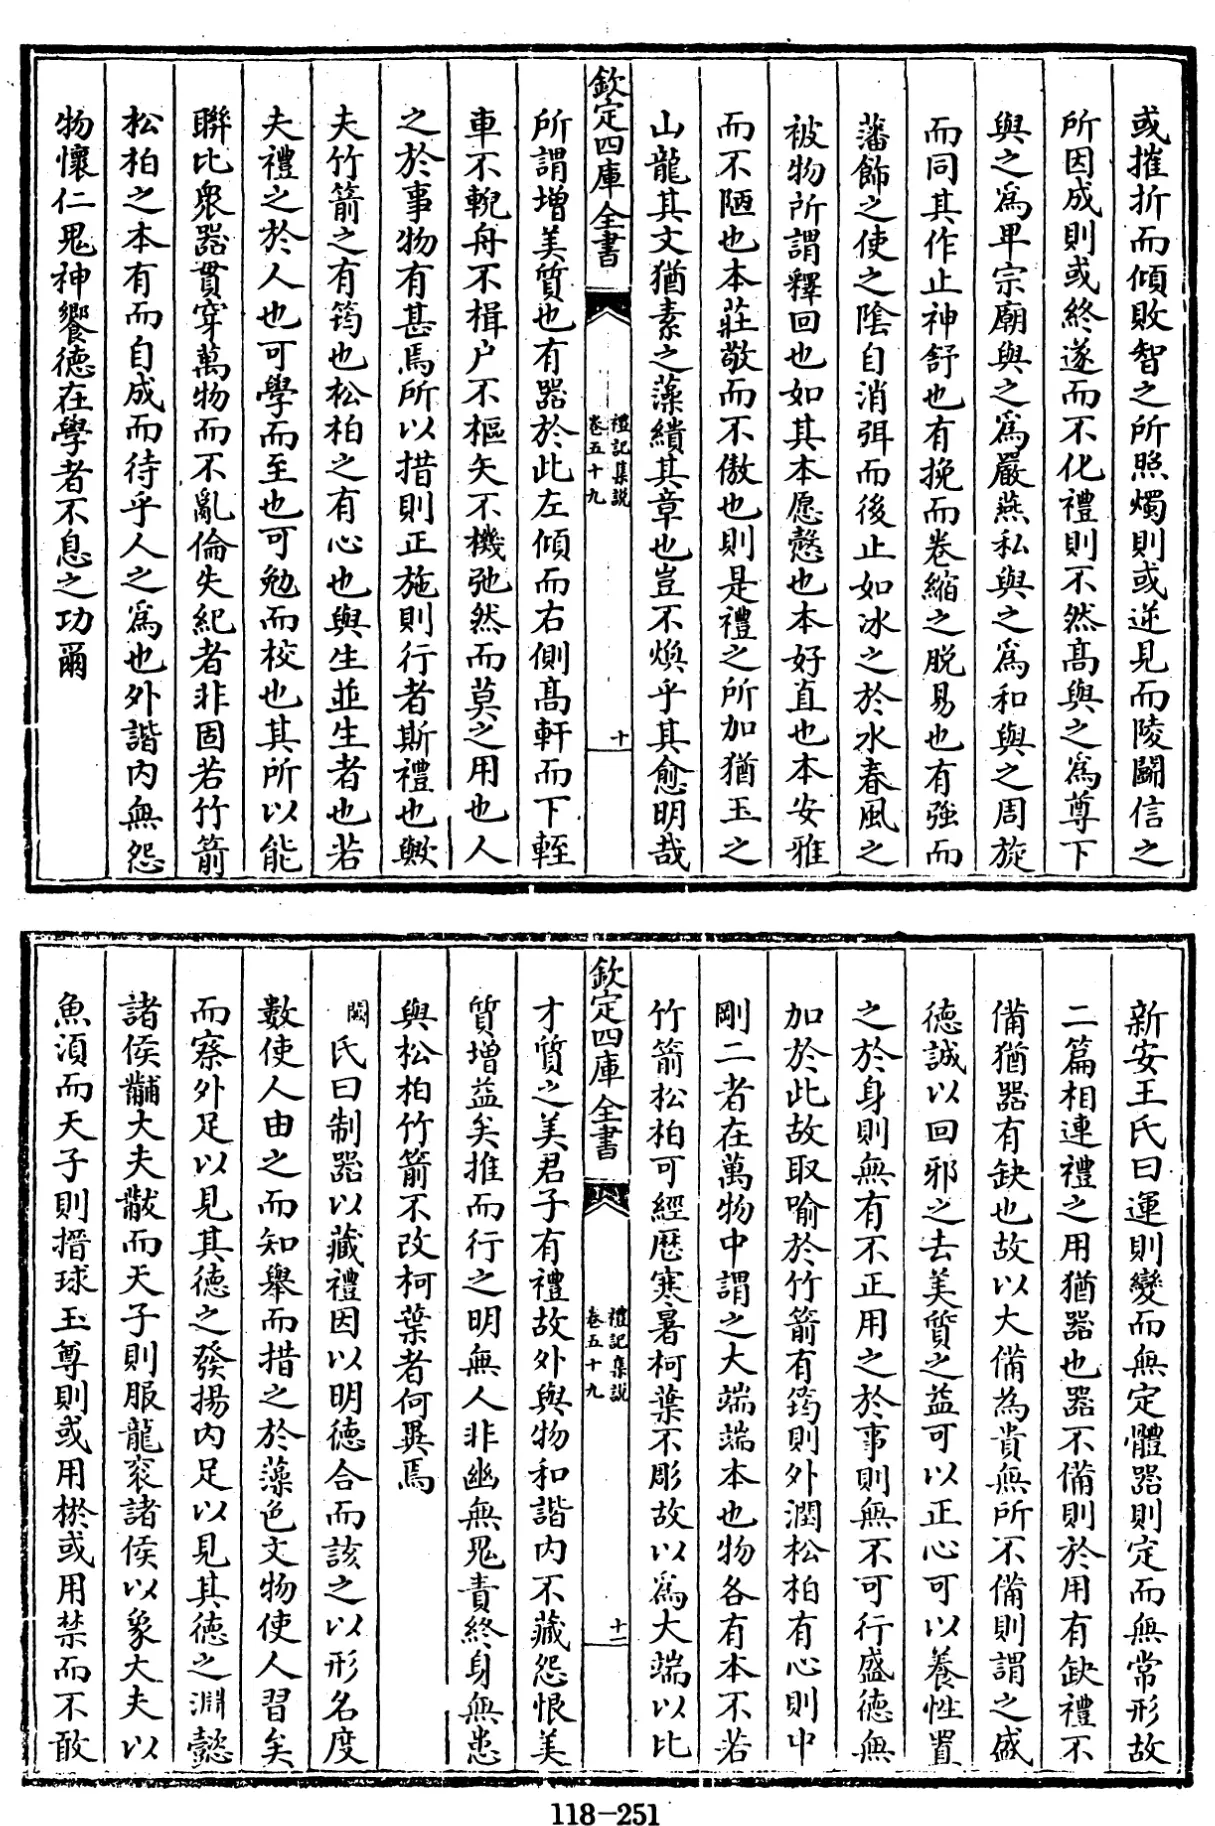 或摧折而傾敗智之所照燭則或逆見而陵鬬信之
所因成則或終遂而不化禮則不然髙與之爲尊下
與之爲卑宗廟與之爲嚴燕私與之爲和與之周旋
而同其作止神舒也有挽而卷縮之脱易也有強而
藩飾之使之隂自消弭而後止如冰之於水春風之
被物所謂釋回也如其本愿慤也本好直也本安雅
而不陋也本莊敬而不傲也則是禮之所加猶玉之
山龍其文猶素之藻繢其章也豈不煥乎其愈明哉
欽定四庫全書
禮記集説
卷五十九
十
所謂增美質也有器於此左傾而右側髙軒而下輊
車不輗舟不楫户不樞矢不機弛然而莫之用也人
之於事物有甚焉所以措則正施則行者斯禮也歟
夫竹箭之有筠也松柏之有心也與生並生者也若
夫禮之於人也可學而至也可勉而校也其所以能
聯比衆器貫穿萬物而不亂倫失紀者非固若竹箭
松柏之本有而自成而待乎人之爲也外諧内無怨
物懷仁鬼神饗德在學者不息之功爾
新安王氏曰運則變而無定體器則定而無常形故
二篇相連禮之用猶器也器不備則於用有缺禮不
備猶器有缺也故以大備為貴無所不備則謂之盛
德誠以回邪之去美質之益可以正心可以養性置
之於身則無有不正用之於事則無不可行盛德無
加於此故取喻於竹箭有筠則外潤松柏有心則中
剛二者在萬物中謂之大端端本也物各有本不若
竹箭松柏可經歴寒暑柯葉不彫故以爲大端以比
欽定四庫全書
禮記集説
卷五十九
十一
才質之美君子有禮故外與物和諧内不藏怨恨美
質增益矣推而行之明無人非幽無鬼責終身無患
與松柏竹箭不改柯葉者何異焉
闕氏曰制器以藏禮因以明德合而該之以形名度
數使人由之而知舉而措之於藻色文物使人習矣
而察外足以見其德之發揚内足以見其德之淵懿
諸侯黼大夫黻而天子則服龍衮諸侯以象大夫以
魚須而天子則搢球玉尊則或用棜或用禁而不敢
118-251